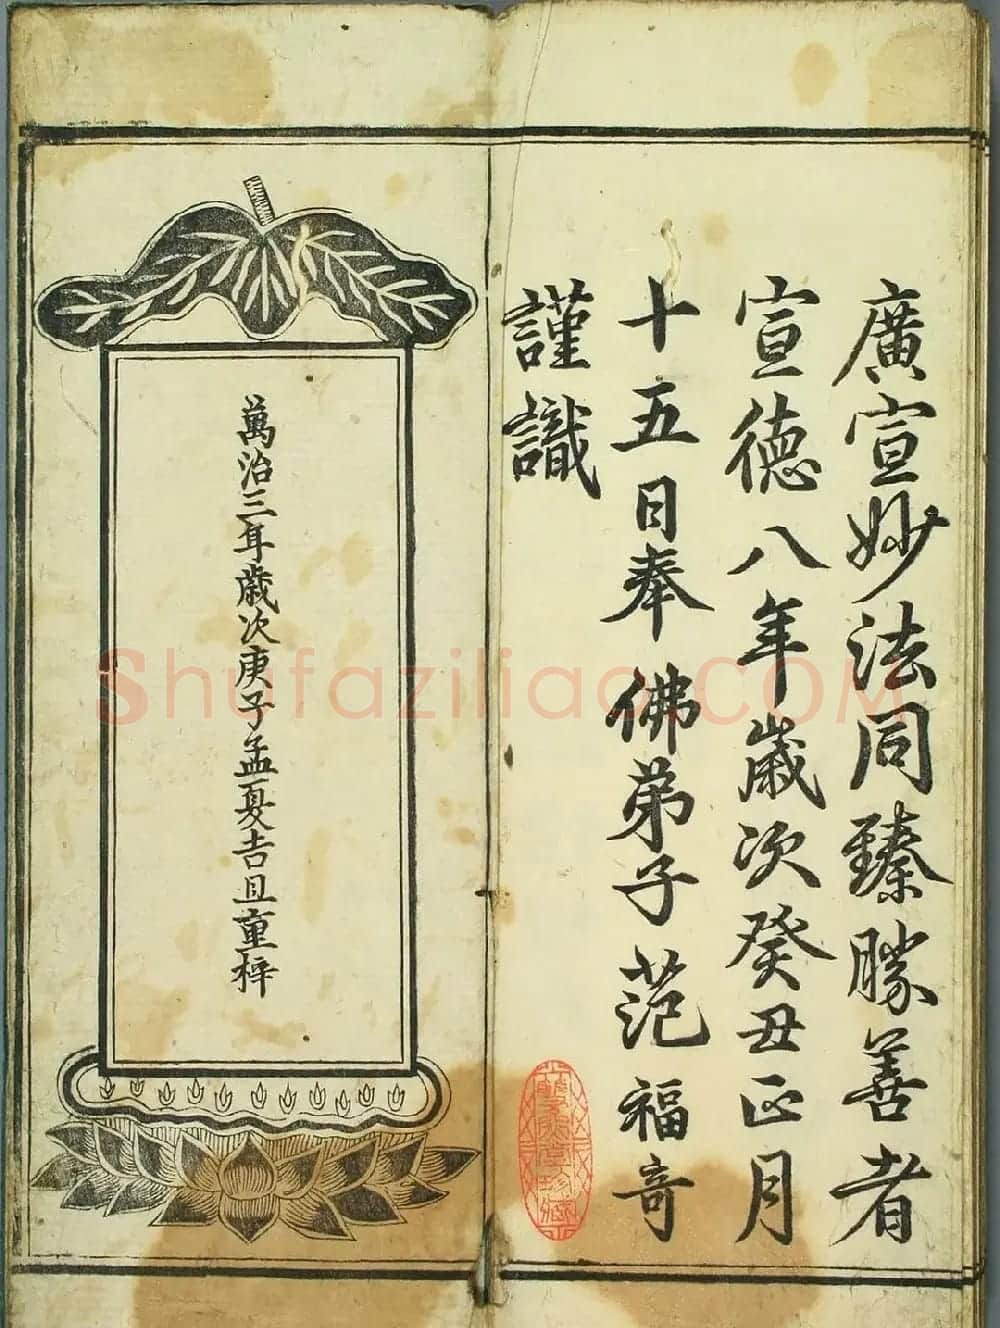 廣宣妙法同臻勝善者
宣德八年歲次癸丑正月
十五日奉佛弟子范福奇
謹識
萬治三年歲次庚子孟夏吉旦重梓
Shufaziliao.COM